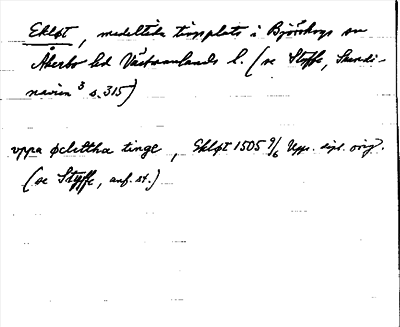 Ekløt, medeltida tingsplats i Björskogs sn
Åkerbo hd Västmanlands l. (se Styffe, Skandi-
navien ³ s. 315)
uppa økløttha tinge, Ekløt 1505 9/6 Upps. dipl. orig.
(se Styffe, anf. st.)